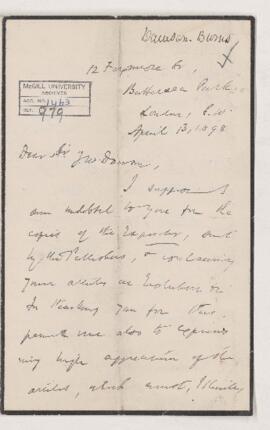 Dawson-Burns
12 Fopmore Rd,
Battersea Park,
London, S.W
April 13, 1898
McGILL UNIVERSITY
ARCHIVES
ACC. NO. 1463
REF. 979
Dear Sir Jw Dawson,
I suppose I
am indebted to you for the
copies of the Expositor, sent
by the Publishers, & containing
your articles on Evolution.
In thanking you for this,
permit me also to express
my high appreciation of the
articles, which must, I think